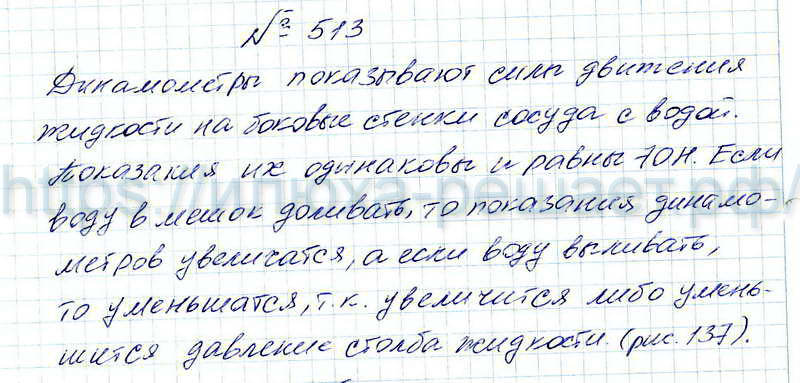 № 513
Динамометры показывают силы движения
жидкости на боковые стенки сосуда с водой.
Показания их одинаковы и равны 70Н. Если
воду в мешок доливать, то показания динамо-
метров увеличатся, а если воду выливать,
то уменьшатся, т.к. увеличится либо умень-
шится давление столба жидкости. (рис. 137).